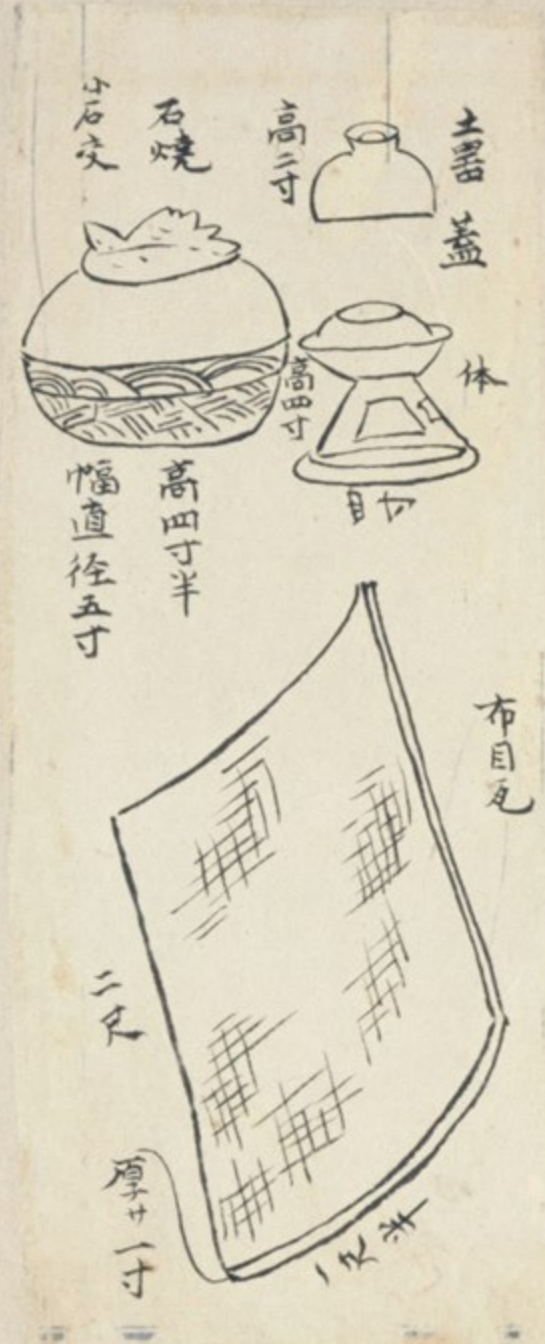 土器
蓋
高二寸
体
高四寸
石焼
小石交
高四寸半
幅直径五寸
布目瓦
二尺
厚サ一寸
一尺半